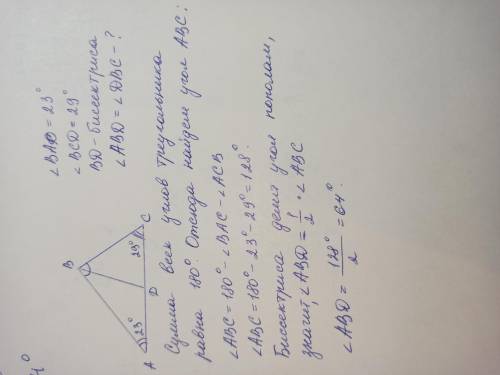 4°
B
A
D
C
23°
29°
∠BAD = 23°
∠BCD = 29°
BD - биссектриса
∠ABD = ∠DBC - ?
Сумма всех углов треугольника
равна 180°. Отсюда найдем угол ABC:
∠ABC = 180° - ∠BAC - ∠ACB
∠ABC = 180° - 23° - 29° = 128°
Биссектриса делит угол пополам,
значит, ∠ABD = 1/2 · ∠ABC
∠ABD = 128°/2 = 64°.